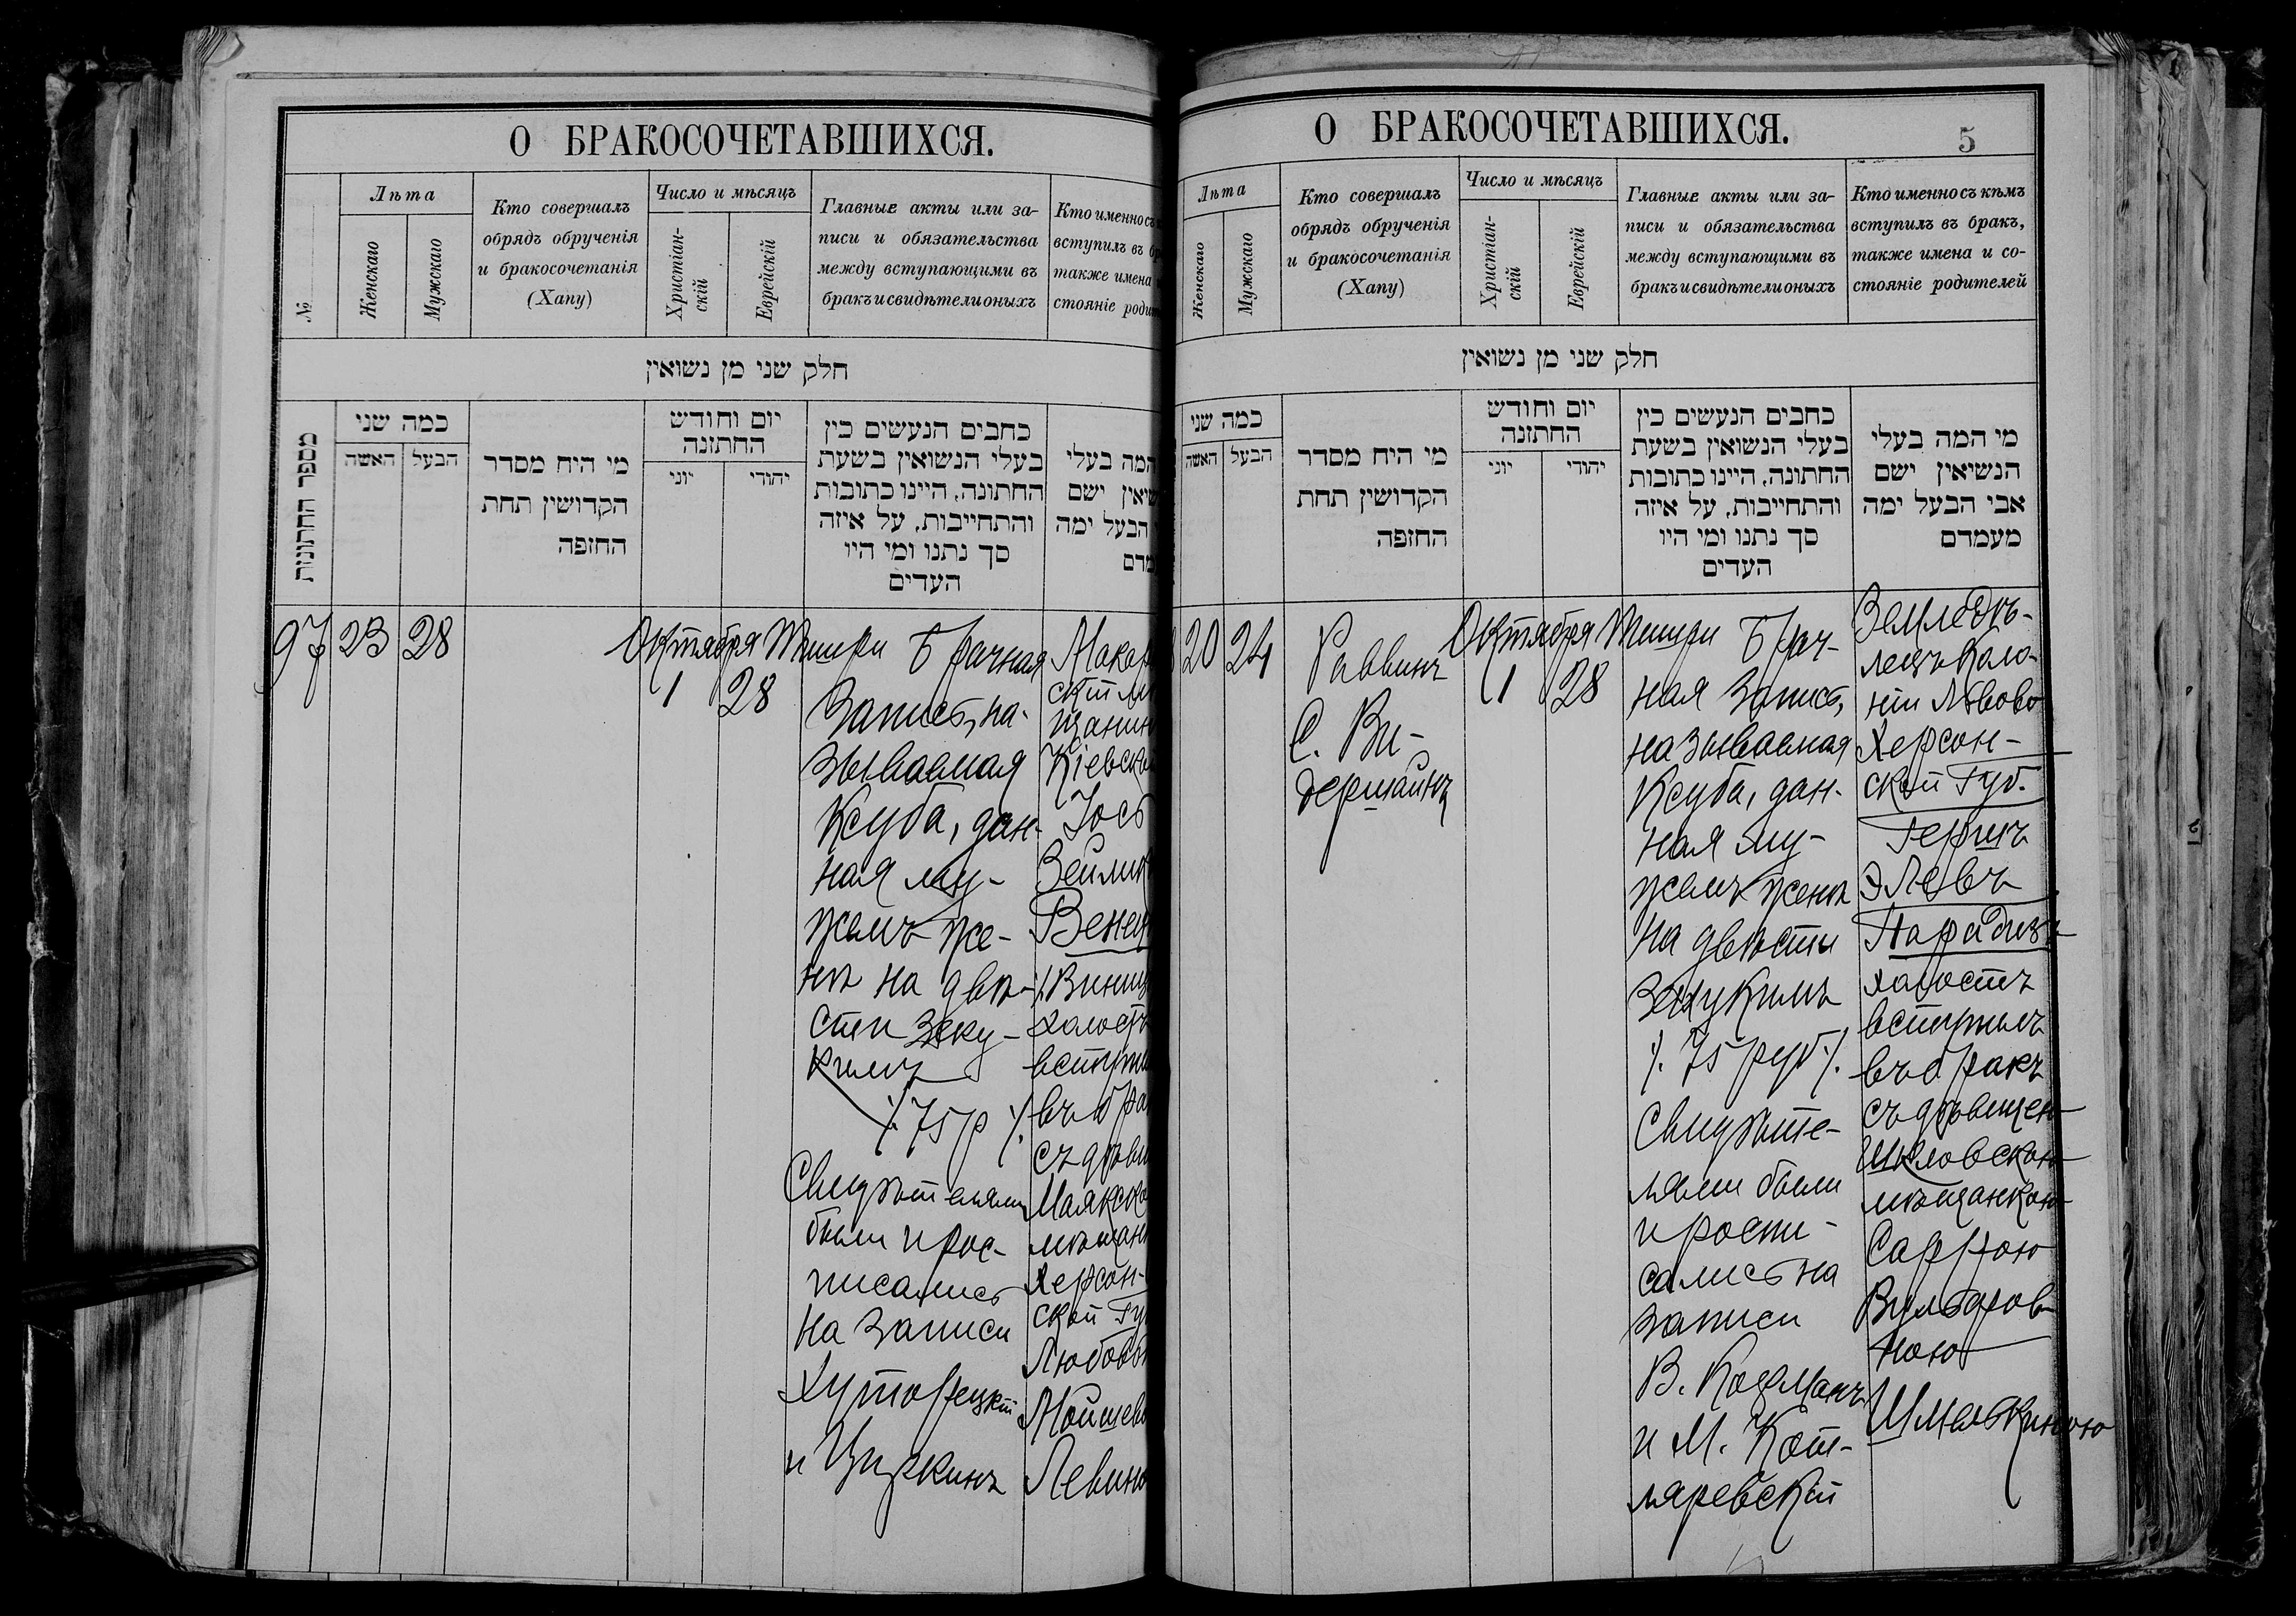 О БРАКОСОЧЕТАВШИХСЯ.
№
Лѣта
Женскаго
Мужскаго
Кто совершалъ
обрядъ обрученія
и бракосочетанія
(Хапу)
Число и мѣсяцъ
Христіан-
скій
Еврейскій
Главные акты или за-
писи и обязательства
между вступающими въ
бракъ и свидѣтели оныхъ
Кто именно съ
вступилъ въ
также имена
стояніе
חלק שני מן נשואין
מספר החתונות
כמה שני
האשה
הבעל
מי היח מסדר
הקדושין תחת
החזפה
יום וחודש
החתזנה
יוני
יהודי
כחבים הנעשים כין
בעלי הנשואין בשעת
החתונה, היינו כתובות
והתחייבות, על איזה
סך נתנו ומי היו
העדים
המה בעלי
ישם
הבעל ימה
97
23
28
Октября
1
Тишри
28
Брачная
запись, на-
зываемая
Ксуба, дан-
ная му-
жемъ же-
нѣ на двѣ-
сти зеку-
кимъ
/. 75 р /.
Свидѣтелями
были и рос-
писались
на записи
Хуторецкій
и Циркинъ
Макар
скій
щанин
Кіевско
Іось
Зейлик
Венец
/. Винни
холостъ
вступи
въ бра
съ дѣви
Маякско
мѣщан
Херсон-
ской Гу
Любовь
Мойшев
Левино
О БРАКОСОЧЕТАВШИХСЯ.
5
Лѣта
Женскаго
Мужскаго
Кто совершалъ
обрядъ обрученія
и бракосочетанія
(Хапу)
Число и мѣсяцъ
Христіан-
скій
Еврейскій
Главные акты или за-
писи и обязательства
между вступающими въ
бракъ и свидѣтели оныхъ
Кто именно съ кѣмъ
вступилъ въ бракъ,
также имена и со-
стояніе родителей
חלק שני מן נשואין
כמה שני
האשה
הבעל
מי היח מסדר
הקדושין תחת
החזפה
יום וחודש
החתזנה
יוני
יהודי
כחבים הנעשים כין
בעלי הנשואין בשעת
החתונה, היינו כתובות
והתחייבות, על איזה
סך נתנו ומי היו
העדים
מי המה בעלי
הנשיאין ישם
אבי הבעל ימה
מעמדם
20
24
Раввинъ
С. Ви-
дершайнъ
Октября
1
Тишри
28
Брач-
ная запись,
называемая
Ксуба, дан-
ная му-
жемъ женѣ
на двѣсти
зекукимъ
/. 75 руб /.
Свидѣте-
лями были
и роспи-
сались на
записи
В. Кофманъ
и М. Кот-
ляревскій
Земледѣ-
лецъ коло-
ніи Львово
Херсон-
ской Губ.
Гершъ
Элевъ
Парадизъ
холостъ
вступилъ
въ бракъ
съ дѣвицею
Шкловскою
мѣщанкою
Саррою
Вульфов-
ною